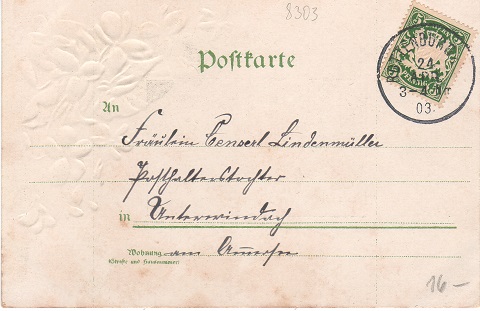 8303
Postkarte
24
3-4 N
03.
An
Fräulein Censerl Lindenmüller
Posthalterstochter
in Unterwindach
Wohnung am Ammersee
(Straße und Hausnummer)
16—